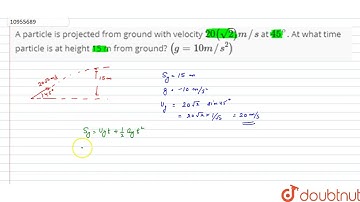 10955689
A particle is projected from ground with velocity 20(√2)m/s at 45°. At what time
particle is at height 15 m from ground? (g = 10m/s²)
20√2 m/s
45°
15m
Sy = 15 m
g = -10 m/s²
Vy = 20√2 sin45°
= 20√2 × 1/√2 = 20 m/s
Sy = Vyt + 1/2 ayt²
doubtnut